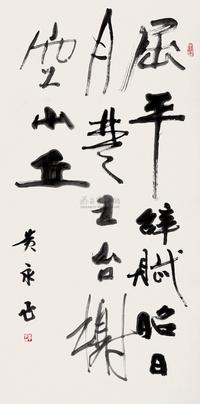 屈平辞賦昭日
月楚王台榭
空山丘
黄永